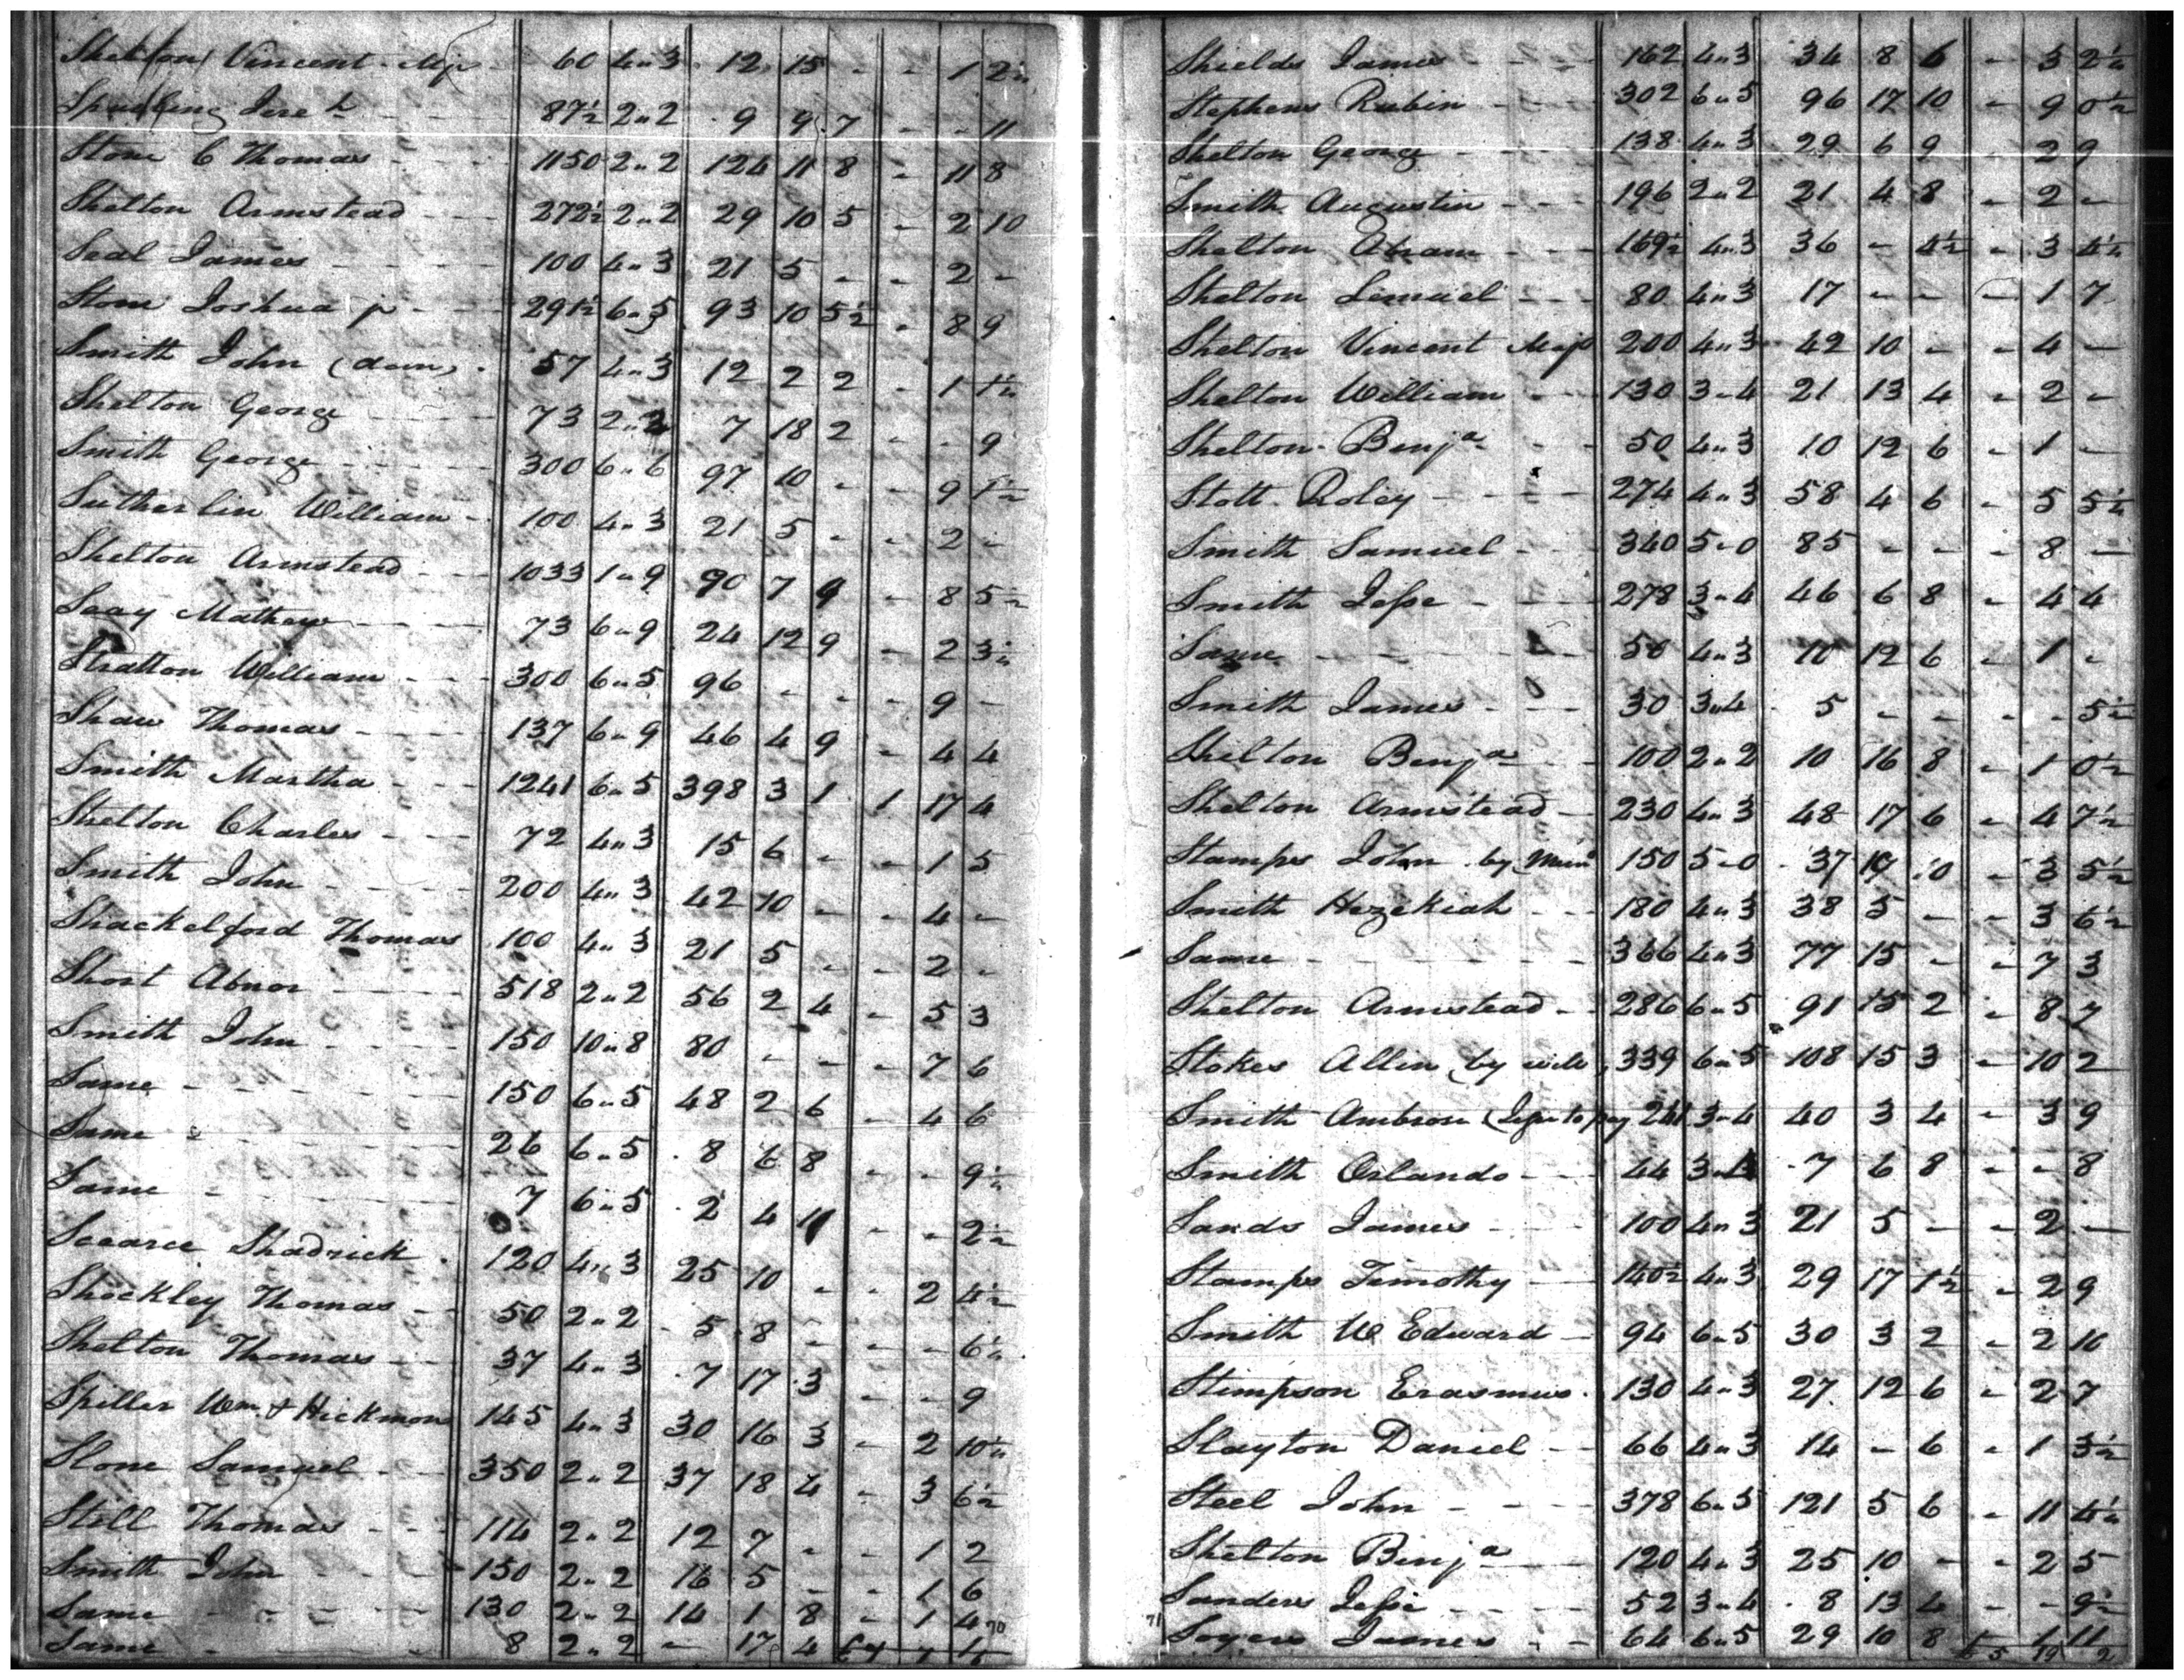 Shelton Vincent Maj 60 4"3 12 15 - - 1 2½
Spradling Jere h 87½ 2"2 9 9 7 - - 11
Stone C Thomas 1150 2"2 124 11 8 - 11 8
Shelton Armstead 272½ 2"2 29 10 5 - 2 10
Seal James 100 4"3 21 5 - - 2 -
Stone Joshua jr 291½ 6"5 93 10 5½ - 8 9
Smith John (dan) 57 4"3 12 2 2 - 1 1½
Shelton George 73 2"2 7 18 2 - - 9
Smith George 300 6"6 97 10 - - 9 1½
Sutherlin William 100 4"3 21 5 - - 2 -
Shelton Armstead 1033 1"9 90 7 9 - 8 5½
Seay Mathew 73 6"9 24 12 9 - 2 3½
Stratton William 300 6"5 96 - - - 9 -
Shaw Thomas 137 6"9 46 4 9 - 4 4
Smith Martha 1241 6"5 398 3 1 1 17 4
Shelton Charles 72 4"3 15 6 - - 1 5
Smith John 200 4"3 42 10 - - 4 -
Shackelford Thomas 100 4"3 21 5 - - 2 -
Short Abnor 518 2"2 56 2 4 - 5 3
Smith John 150 10"8 80 - - - 7 6
Same 150 6"5 48 2 6 - 4 6
Same 26 6"5 8 6 8 - - 9½
Same 7 6"5 2 4 11 - - 2½
Scearce Shadrick 120 4"3 25 10 - - 2 4½
Shockley Thomas 50 2"2 5 8 - - - 6½
Shelton Thomas 37 4"3 7 17 3 - - 9
Spiller Wm & Hickmon 145 4"3 30 16 3 - 2 10½
Stone Samuel 350 2"2 37 18 4 - 3 6½
Still Thomas 114 2"2 12 7 - - 1 2
Smith John 150 2"2 16 5 - - 1 6
Same 130 2"2 14 1 8 - 1 4
70
Same 8 2"2 - 17 4
Shields James 162 4"3 34 8 6 - 3 2½
Stephens Rubin 302 6"5 96 17 10 - 9 0½
Shelton George 138 4"3 29 6 9 - 2 9
Smith Augustin 196 2"2 21 4 8 - 2 -
Shelton Abram 169½ 4"3 36 - 4½ - 3 4½
Shelton Lemuel 80 4"3 17 - - - 1 7
Shelton Vincent Majr 200 4"3 42 10 - - 4 -
Shelton William 130 3"4 21 13 4 - 2 -
Shelton Benja 50 4"3 10 12 6 - 1 -
Stott Roley 274 4"3 58 4 6 - 5 5½
Smith Samuel 340 5"0 85 - - - 8 -
Smith Jesse 278 3"4 46 6 8 - 4 4
Same 50 4"3 10 12 6 - 1 -
Smith James 30 3"4 5 - - - - 5½
Shelton Benja 100 2"2 10 16 8 - 1 0½
Shelton Armstead 230 4"3 48 17 6 - 4 7½
Stamps John by 150 5"0 37 10 - 3 5½
Smith Hezekiah 180 4"3 38 5 - - 3 6½
Same 366 4"3 77 15 - - 7 3
Shelton Armstead 286 6"5 91 15 2 - 8 7
Stokes Allen by will 339 6"5 108 15 3 - 10 2
Smith Ambrose (Jesse to pay 241 3"4 40 3 4 - 3 9
Smith Orlando 44 3"4 7 6 8 - - 8
Sands James 100 4"3 21 5 - - 2 -
Stamps Timothy 140½ 4"3 29 17 1½ - 2 9
Smith W Edward 94 6"5 30 3 2 - 2 10
Stimpson Erasmus 130 4"3 27 12 6 - 2 7
Slayton Daniel 66 4"3 14 - 6 - 1 3½
Steel John 378 6"5 121 5 6 - 11 4½
Shelton Benja 120 4"3 25 10 - - 2 5
Sanders Jesse 52 3"4 8 13 4 - - 9½
71
Soyers James 64 6"5 29 10 8 - 1 11
5 19 2